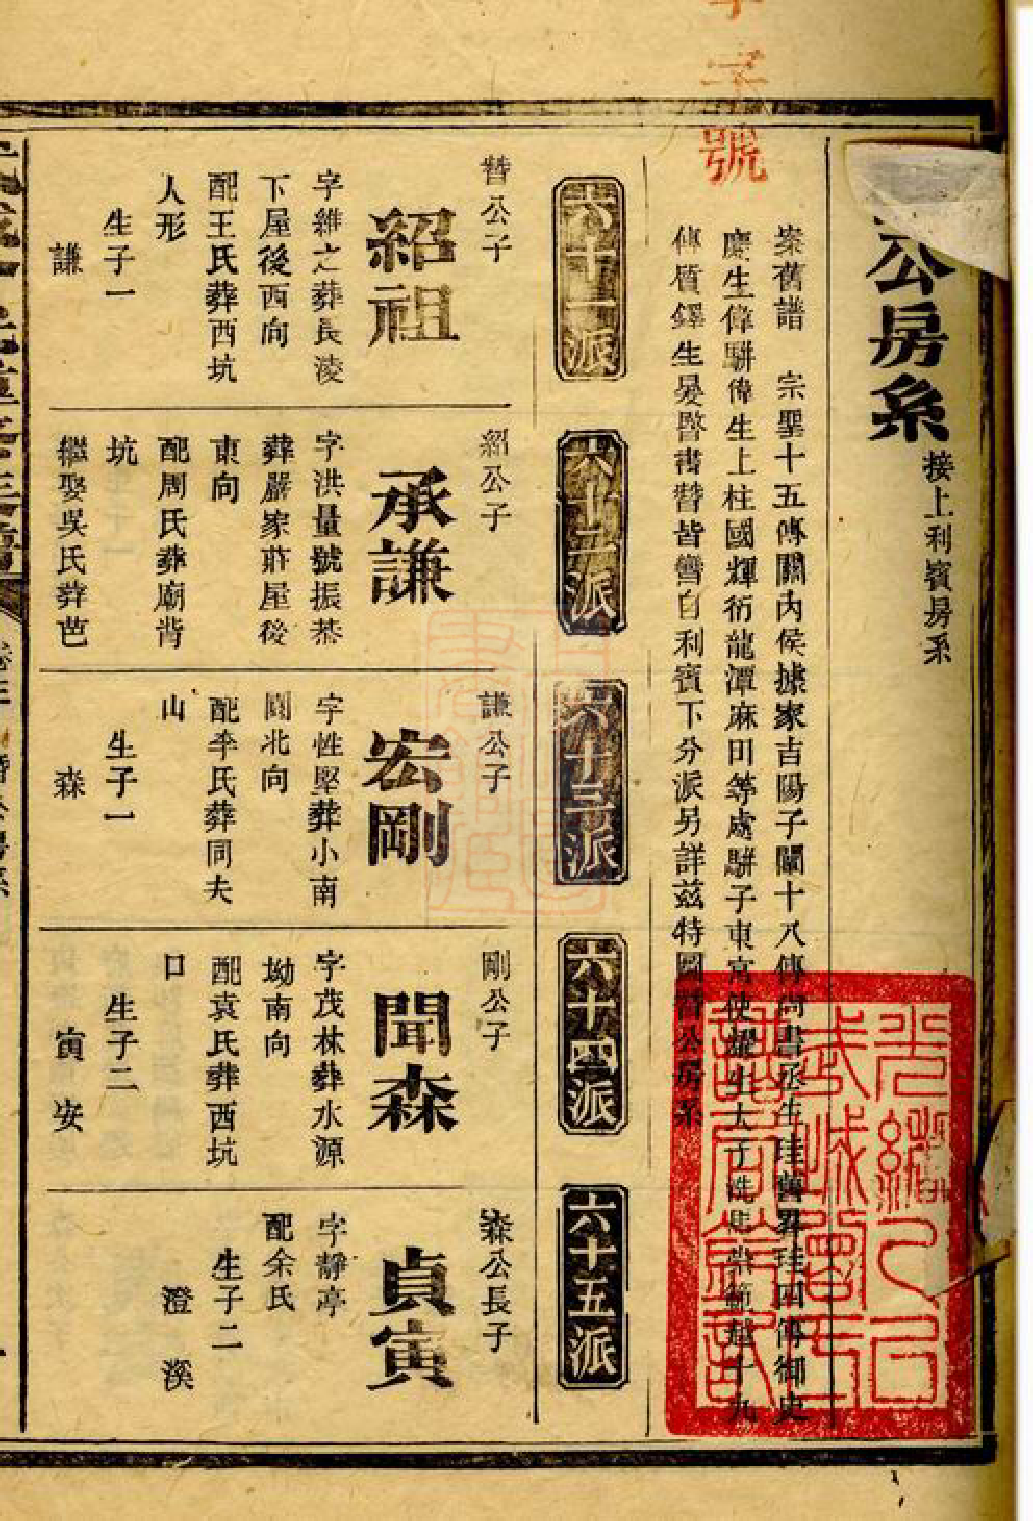 字號
公房系
接上利賓房系
案舊譜 宗聖十五傳關內侯據家吉陽子闡十八傳尚書丞生珪舊昇珪四傳御史
慶生偉駢偉生上柱國輝衍龍潭麻田等處駢子東宮使耀生太子洗馬崇範
傳質鐸生晏暋書朁皆鶯自利賓下分派另詳茲特圖朁公房系
六十一派
朁公子
紹祖
字維之葬長凌
下屋後酉向
配王氏葬西坑
人形
生子一
謙
六十二派
紹公子
承謙
字洪量號振恭
葬嚴家莊屋後
東向
配周氏葬廟背
坑
繼娶吳氏葬芭
六十三派
謙公子
宏剛
字性堅葬小南
園北向
配李氏葬同夫
山
生子一
森
六十四派
剛公子
聞森
字茂林葬水源
坳南向
配袁氏葬西坑
口
生子二
寅 安
六十五派
森公長子
貞寅
字靜亭
配余氏
生子二
澄 溪